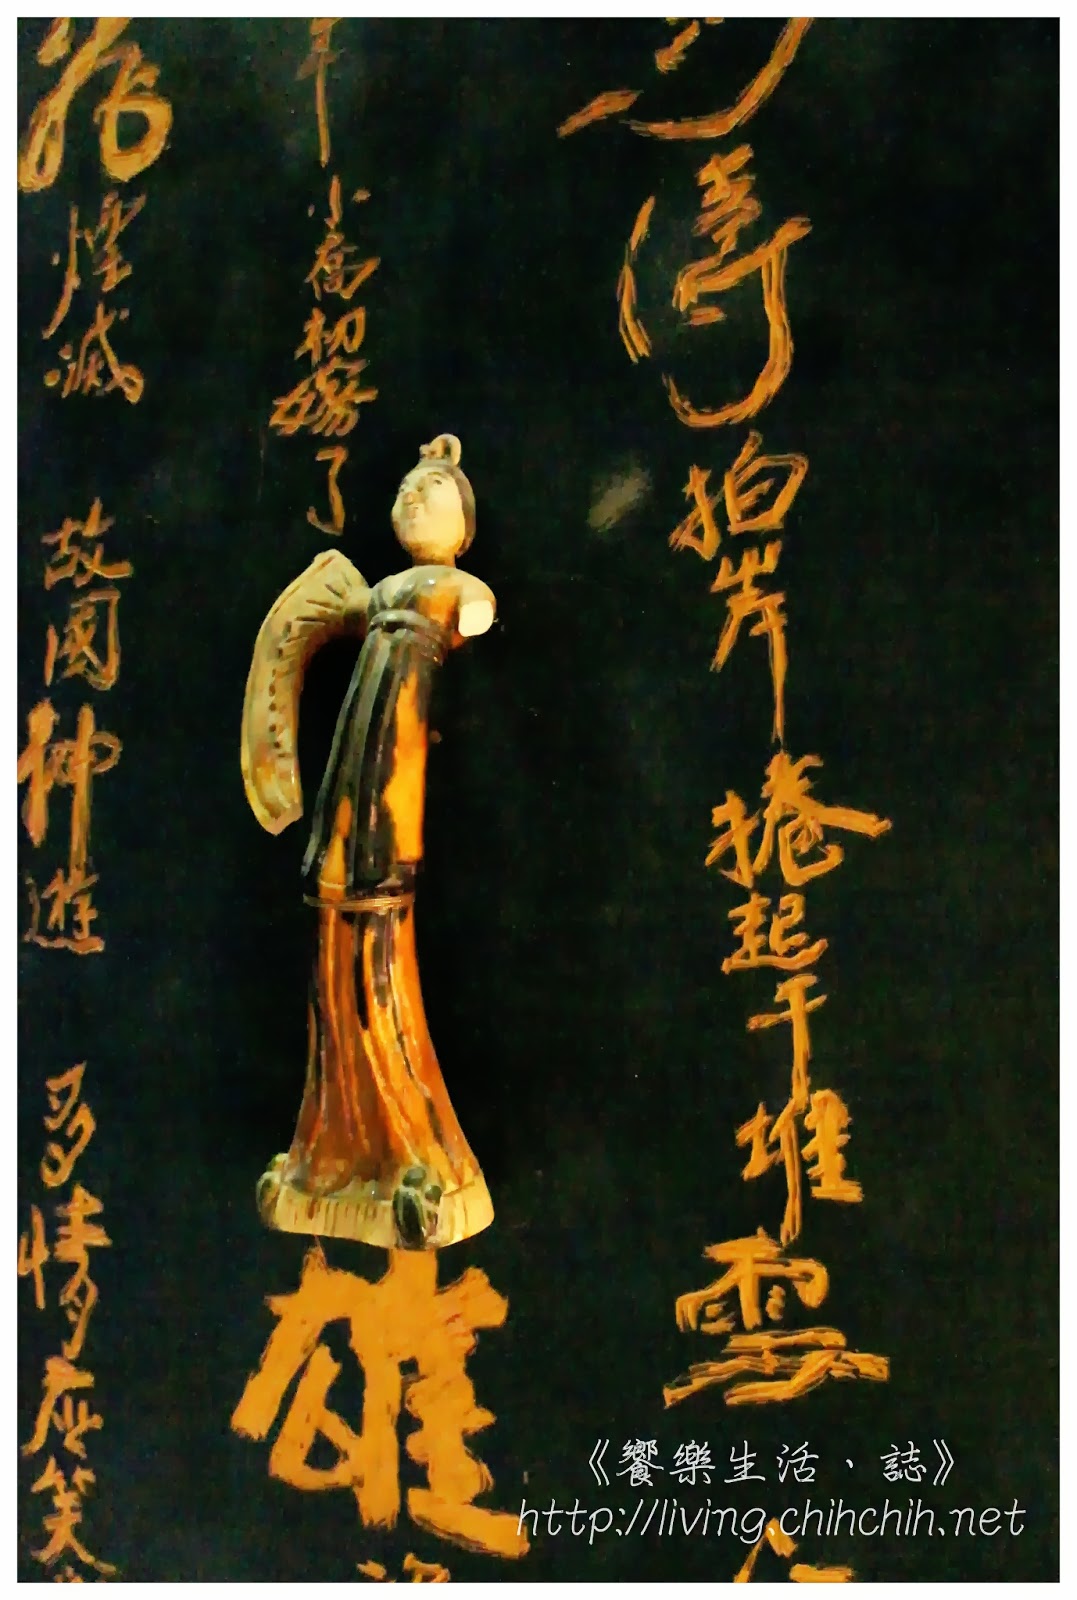 濤拍岸捲起千堆雪
小喬初嫁了雄
飛煙滅 故國神遊 多情應笑
《饗樂生活、誌》
http://living.chihchih.net